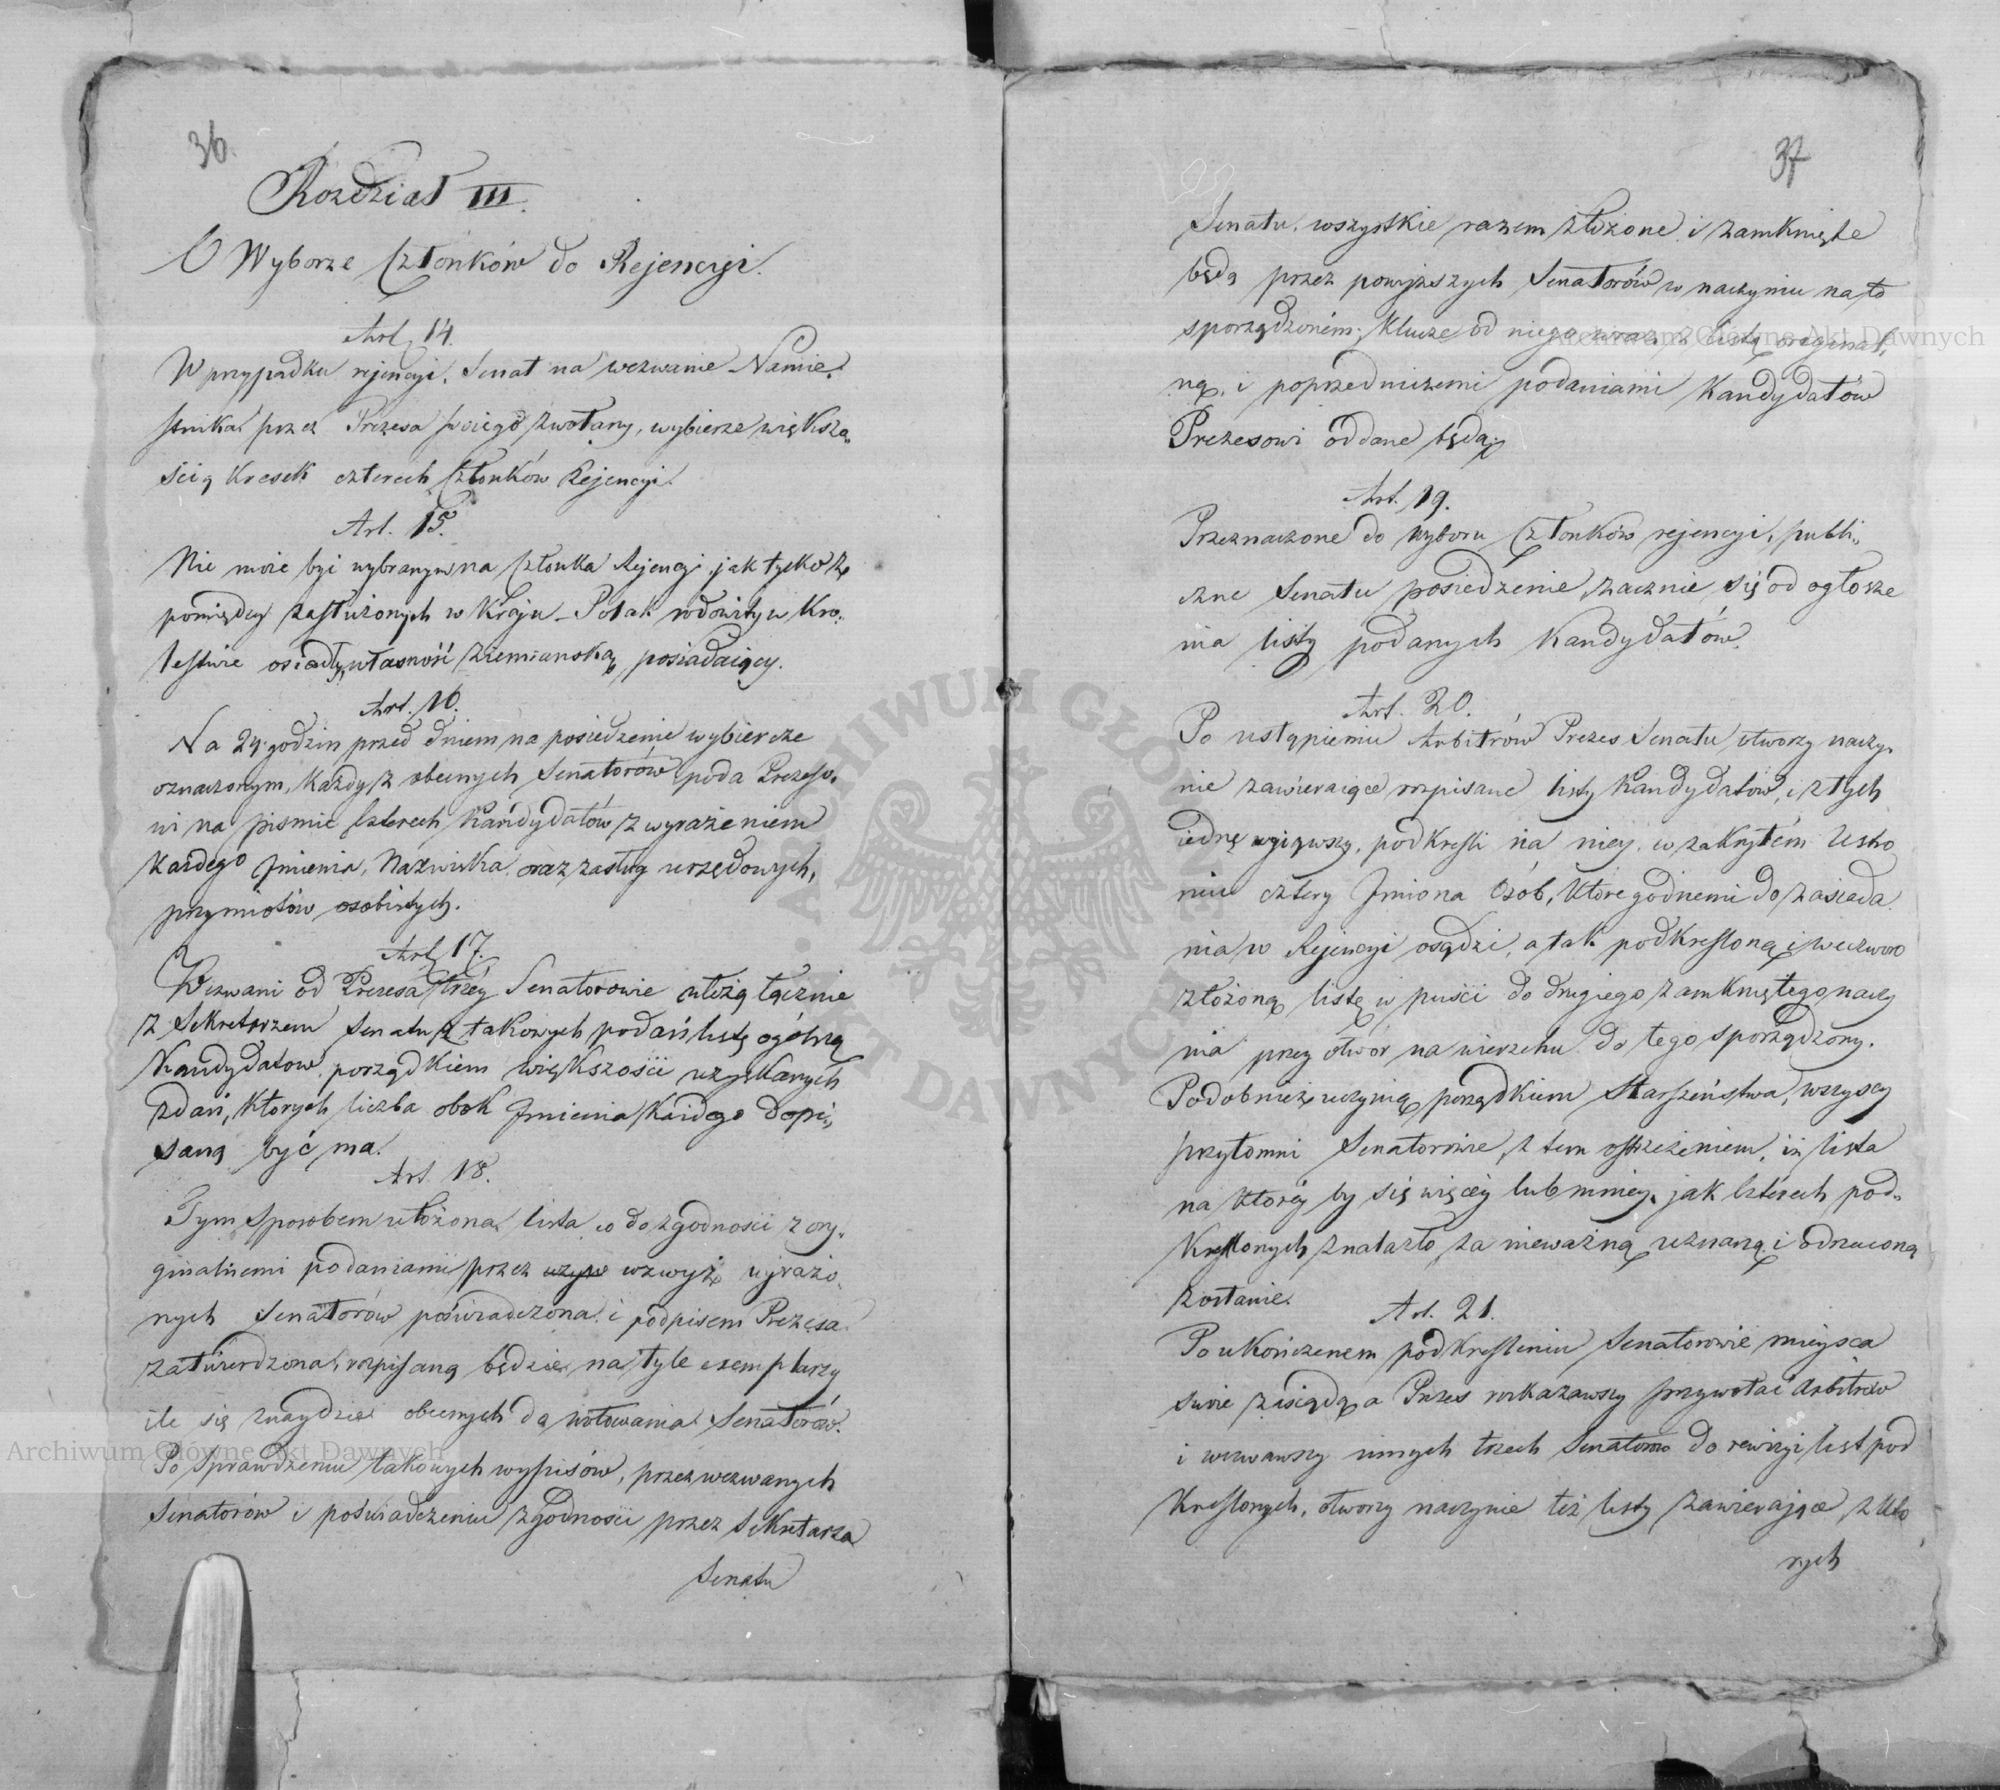 36.
Rozdział III.
O Wyborze Członków do Rejencyi.
Art. 14.
W przypadku rejencyi, Senat na wezwanie Namie„
stnika przez Prezesa swiego zwołany, wybierze większo„
ścią kresek czterech Członków Rejencyi.
Art. 15.
Nie może być wybranym na Członka Rejencyi, jak tylko z
pomiędzy zasłużonych w Kraju Polak rodowity w Kró„
lestwie osiadły, własność ziemianską posiadaiący.
Art. 16.
Na 24 godzin przed dniem na posiedzenie wybiercze
oznaczonym, każdy z obecnych Senatorów poda Prezeso„
wi na pismie czterech Kandydatów z wyrażeniem
każdego Jmienia, Nazwiska oraz zasług urzędowych,
przymiotów osobistych.
Art. 17.
Wezwani od Prezesa trzéy Senatorowie ułożą łącznie
z Sekretarzem Senatu z takowych podań listę ogólną
Kandydatow porządkiem większości uzyskanych
zdań, których liczba obok Jmienia każdego dopi„
saną być ma.
Art. 18.
Tym sposobem ułożona lista co do zgodności z ory„
ginalnemi podaniami przez wzwyż wyrażo„
nych Senatorów poświadczona i podpisem Prezesa
zatwierdzona, rozpisaną będzie na tyle exemplarzy
ile się znaydzie obecnych do wotowania Senatorów.
Po sprawdzeniu takowych wypisów, przez wezwanych
Senatorów i poświadczeniu zgodności przez Sekretarza
Senatu
37
Senatu, wszystkie razem złożone i zamknięte
będą przez powyższych Senatorów w naczyniu na to
sporządzoném; Klucze od niego wraz z listą oryginal„
ną, i poprzedniczemi podaniami Kandydatów
Prezesowi oddane będą.
Art. 19.
Przeznaczone do wyboru Członków rejencyi, publi„
czne Senatu posiedzenie zacznie się od ogłosze
nia listy podanych Kandydatów.
Art. 20.
Po ustąpieniu Arbitrów Prezes Senatu otworzy naczy„
nie zawieraiące rozpisane listy Kandydatów, i z tych
iednę wyiąwszy, podkreśli na niey, w zakrytém ustro
niu cztery Jmiona Osób, które godnemi do zasiada
nia w Rejencyi osądzi, a tak podkresloną i weczworo
złożoną listę wpuści do drugiego zamkniętego naczy
nia przez otwór na wierzchu do tego sporządzony.
Podobnież uczynią porządkiem Starszeństwa, wszyscy
przytomni Senatorowie, z tem ostrzeżeniem, iż lista
na któréy by się więcéy lub mniéy, jak czterech pod„
kreslonych znalazło, za nieważną uznaną i odrzuconą
zostanie.
Art. 21.
Po ukończenem podkresleniu Senatorowie mieysca
swoie zasiędą, a Prezes rozkazawszy przywołać Arbitrów
i wezwawszy innych trzech Senatorow do rewizyi list pod
kreslonych, otworzy naczynie też listy zawierające, z któ
rych